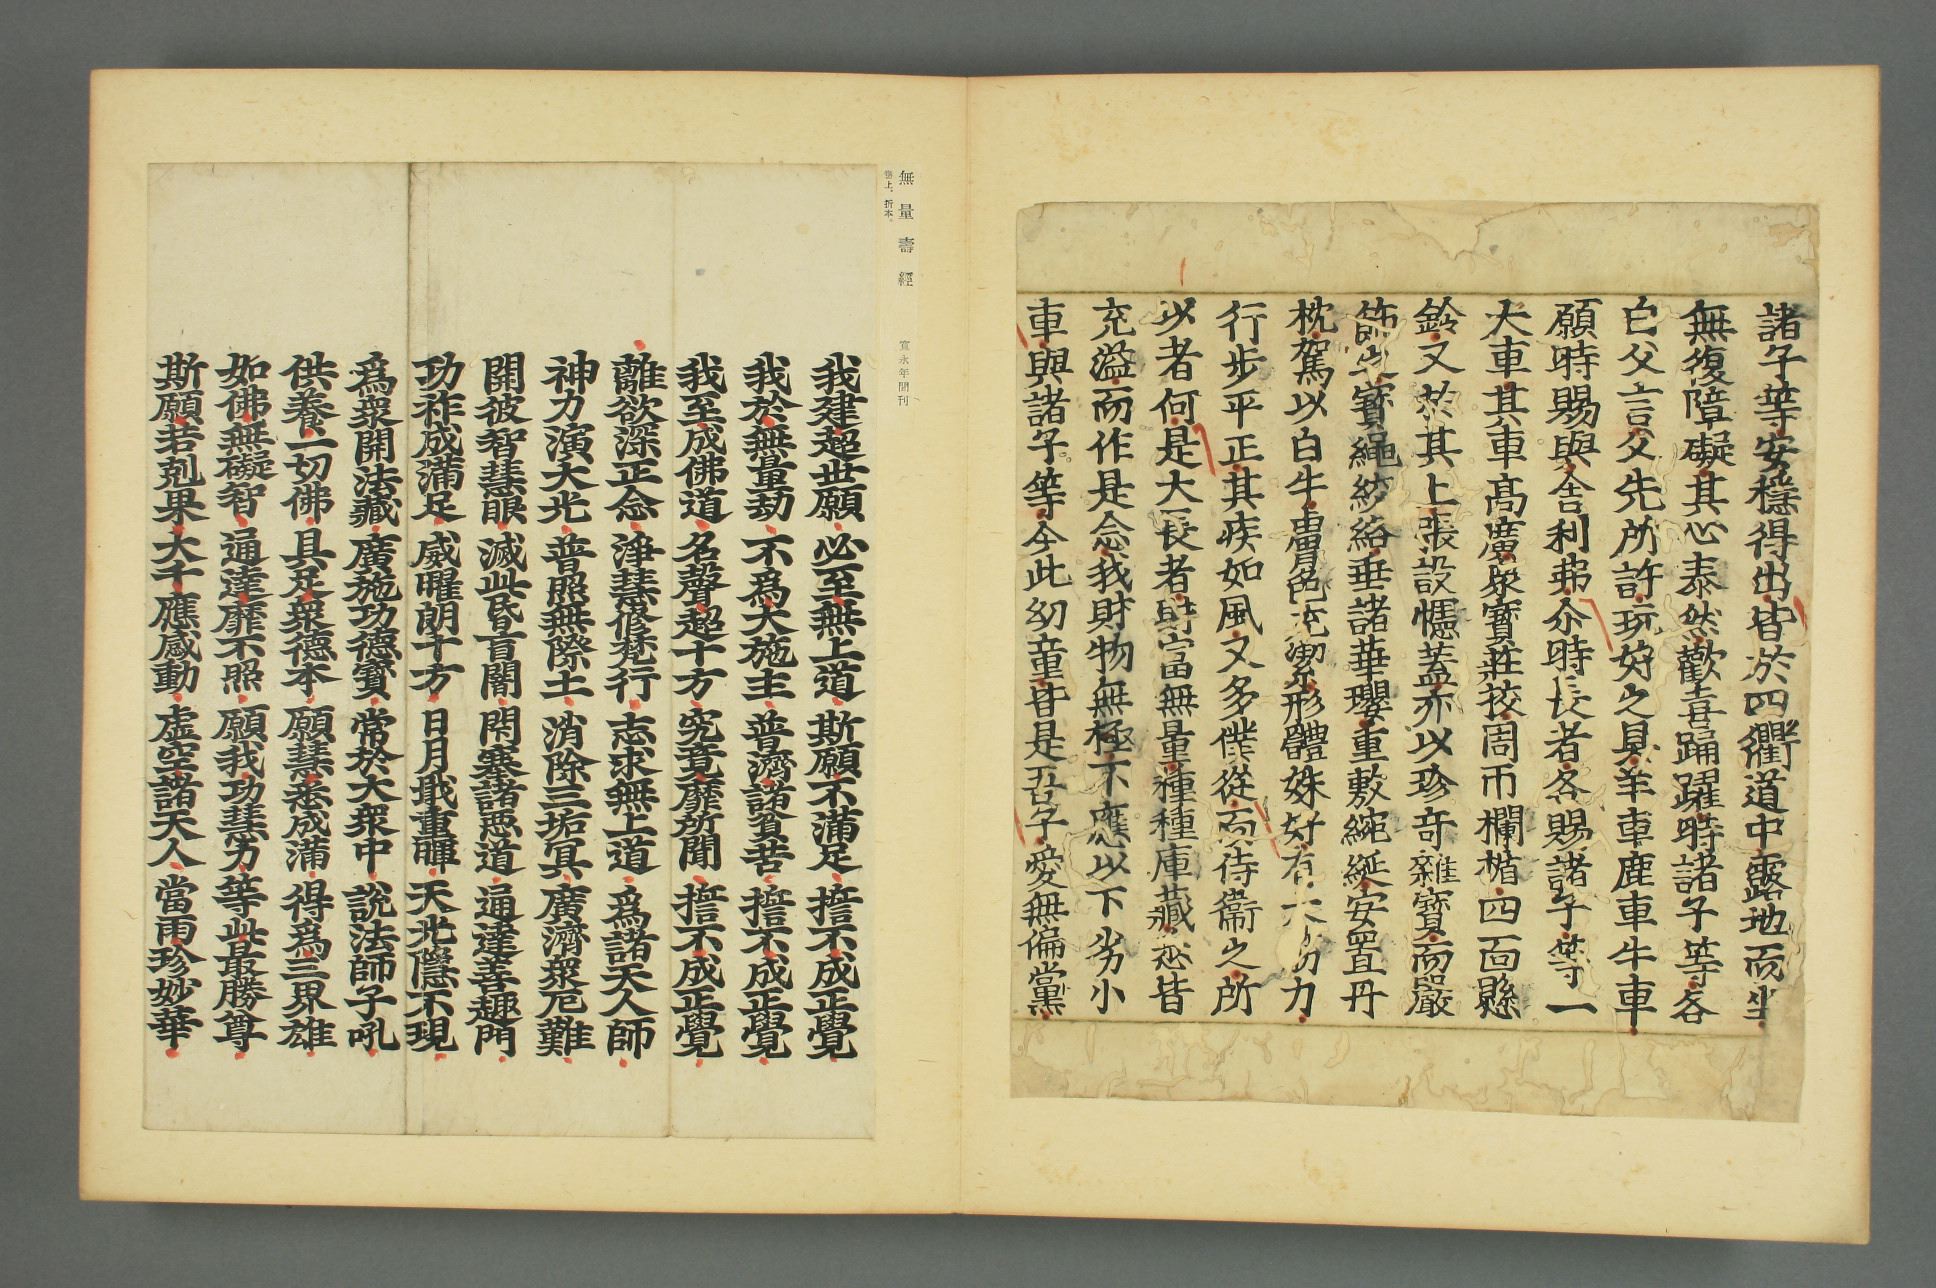 諸子等安穩得出皆於四衢道中露地而坐
無復障礙其心泰然歡喜踊躍時諸子等各
白父言父先所許玩好之具羊車鹿車牛車
願時賜與舍利弗尒時長者各賜諸子等一
大車其車高廣衆寶莊挍周帀欄楯四面懸
鈴又於其上張設幰蓋亦以珍奇雜寶而嚴
飾之寶繩絞絡垂諸華瓔重敷綩綖安置丹
枕駕以白牛膚色充潔形體姝好有大筋力
行步平正其疾如風又多僕從而侍衛之所
以者何是大長者財富無量種種庫藏悉皆
充溢而作是念我財物無極不應以下劣小
車與諸子等今此幼童皆是吾子愛無偏黨
無量壽經 寛永年間刊
卷上。折本。
我建超世願 必至無上道 斯願不滿足 誓不成正覺
我於無量劫 不爲大施主 普濟諸貧苦 誓不成正覺
我至成佛道 名聲超十方 究竟靡所聞 誓不成正覺
離欲深正念 淨慧修梵行 志求無上道 爲諸天人師
神力演大光 普照無際土 消除三垢冥 廣濟衆厄難
開彼智慧眼 滅此昏盲闇 閇塞諸惡道 通達善趣門
功祚成滿足 威曜朗十方 日月戢重暉 天光隱不現
爲衆開法藏 廣施功德寶 常於大衆中 說法師子吼
供養一切佛 具足衆德本 願慧悉成滿 得爲三界雄
如佛無礙智 通達靡不照 願我功慧力 等此最勝尊
斯願若剋果 大千應感動 虛空諸天人 當雨珍妙華